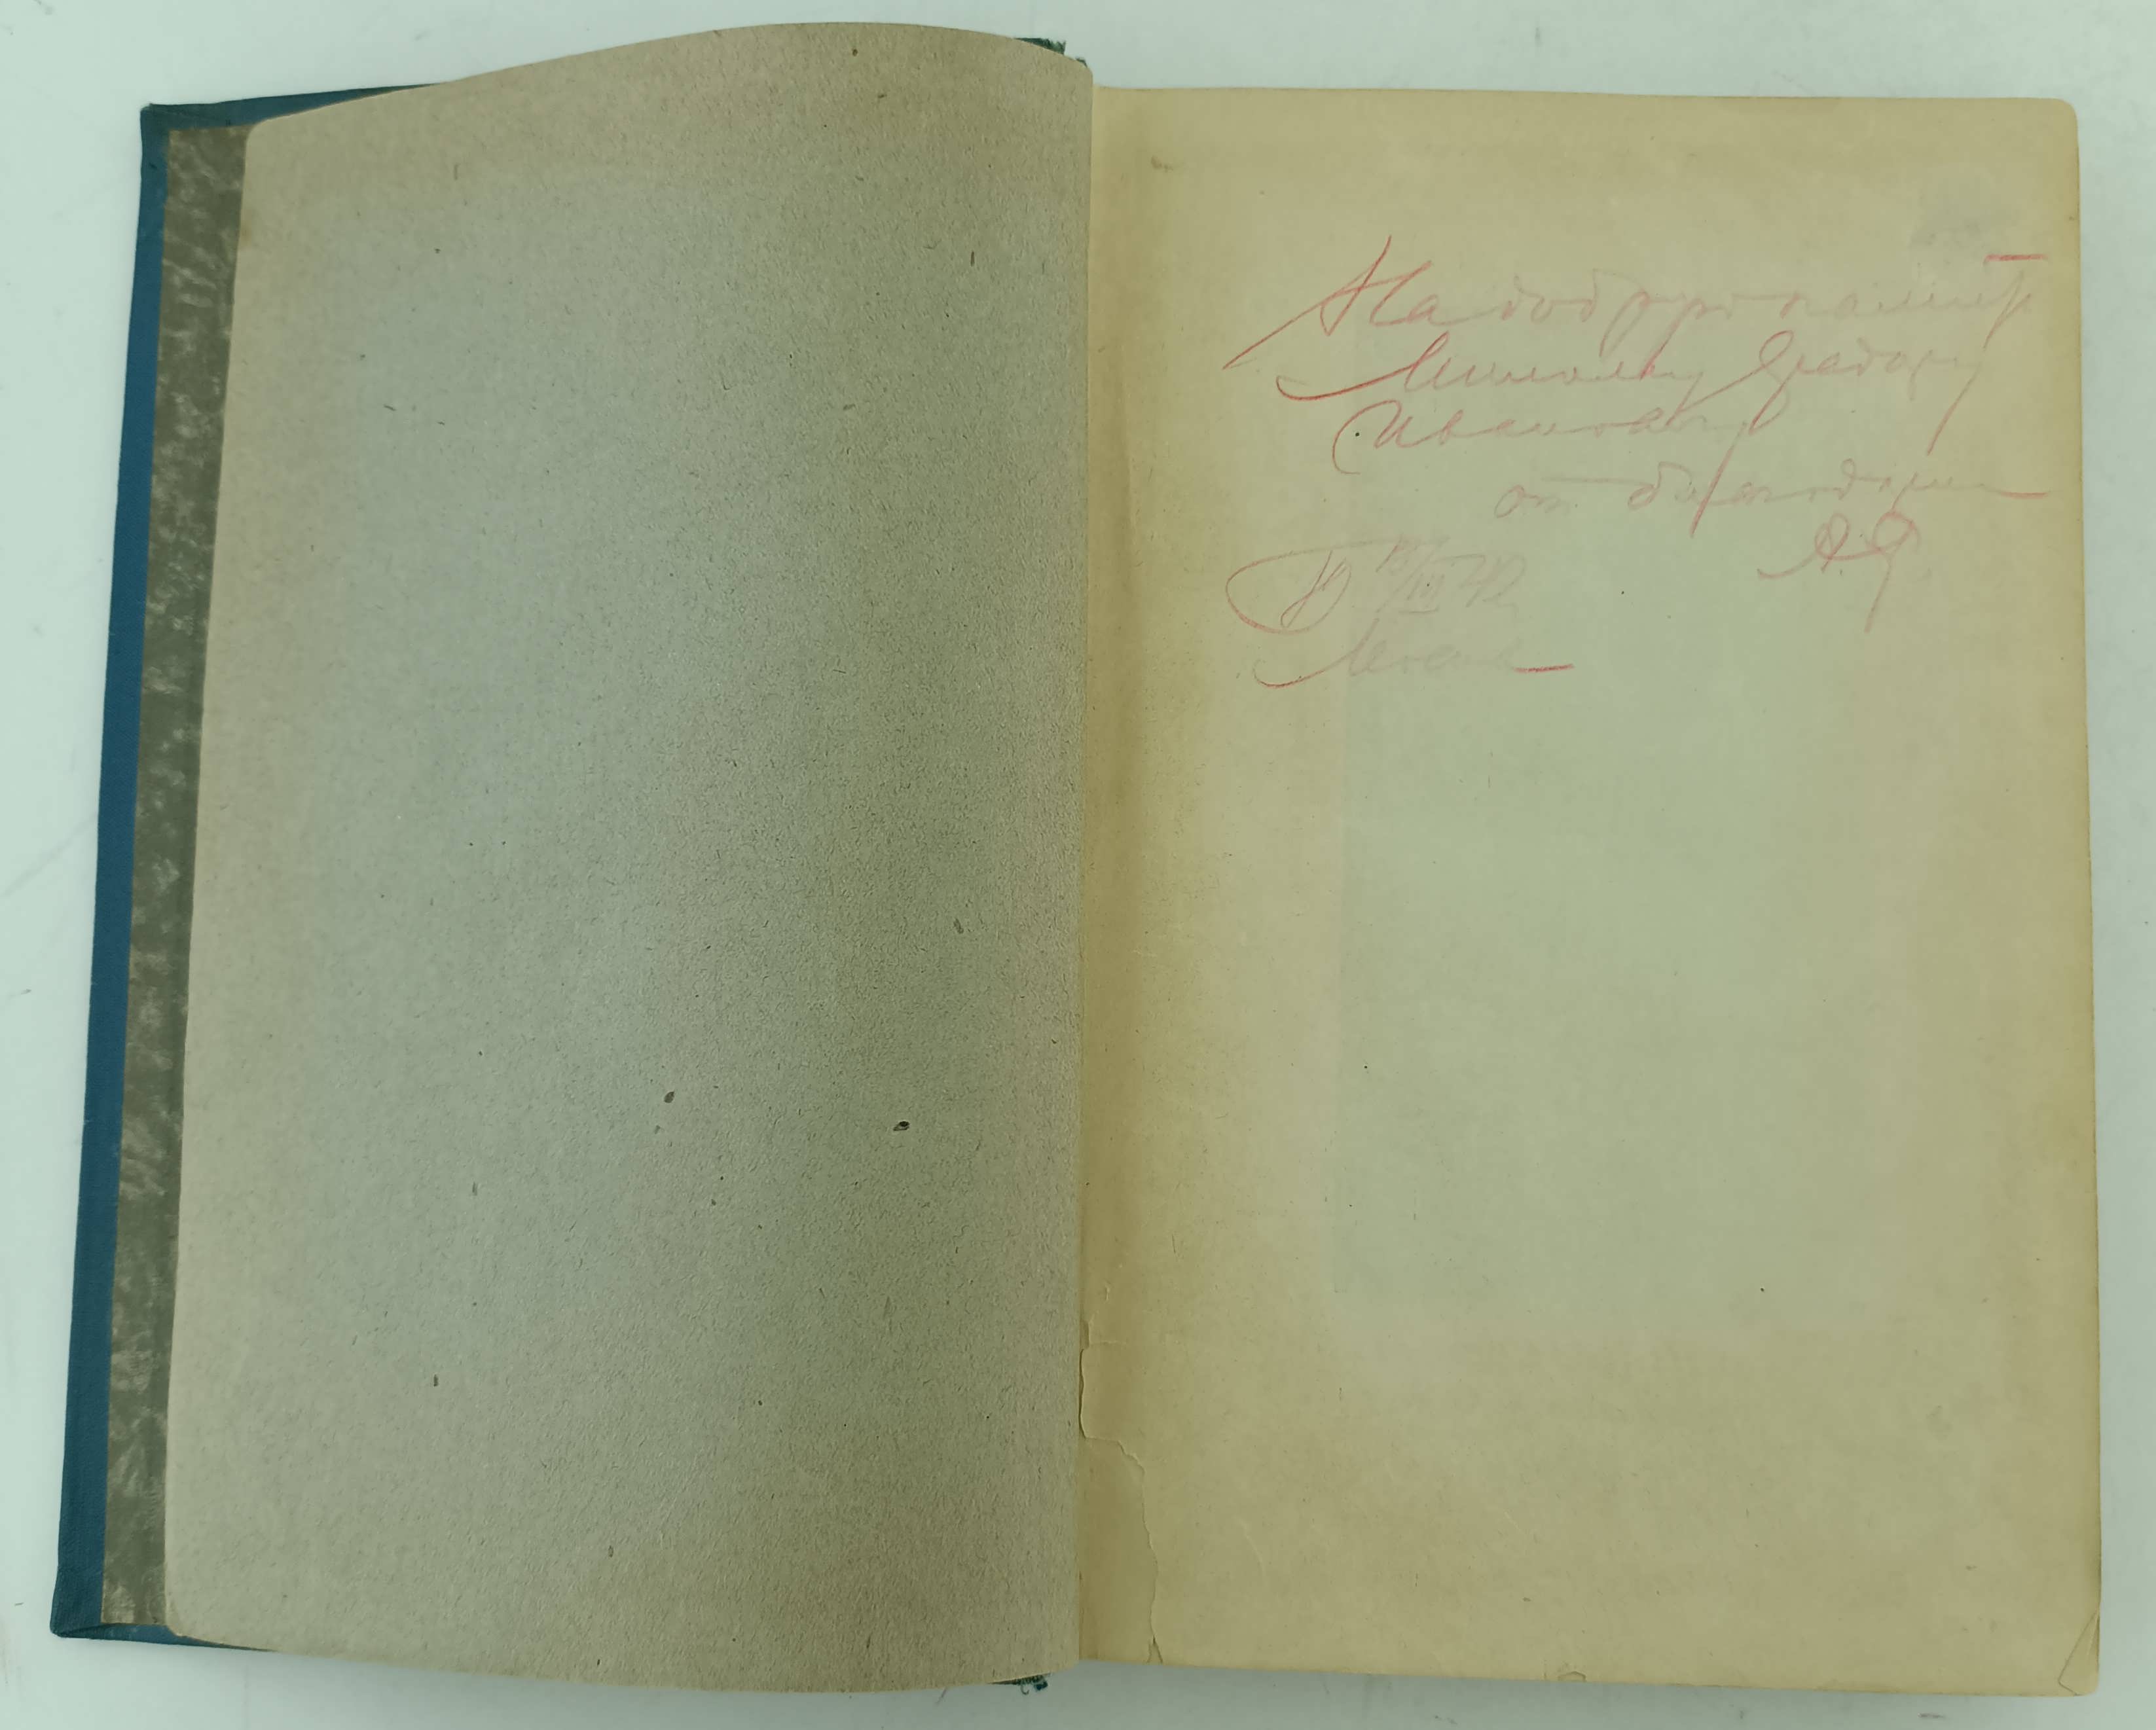 На добрую память
Милому Федору
Ивановичу
от благодарн
А.Я
19/III 42
Москва